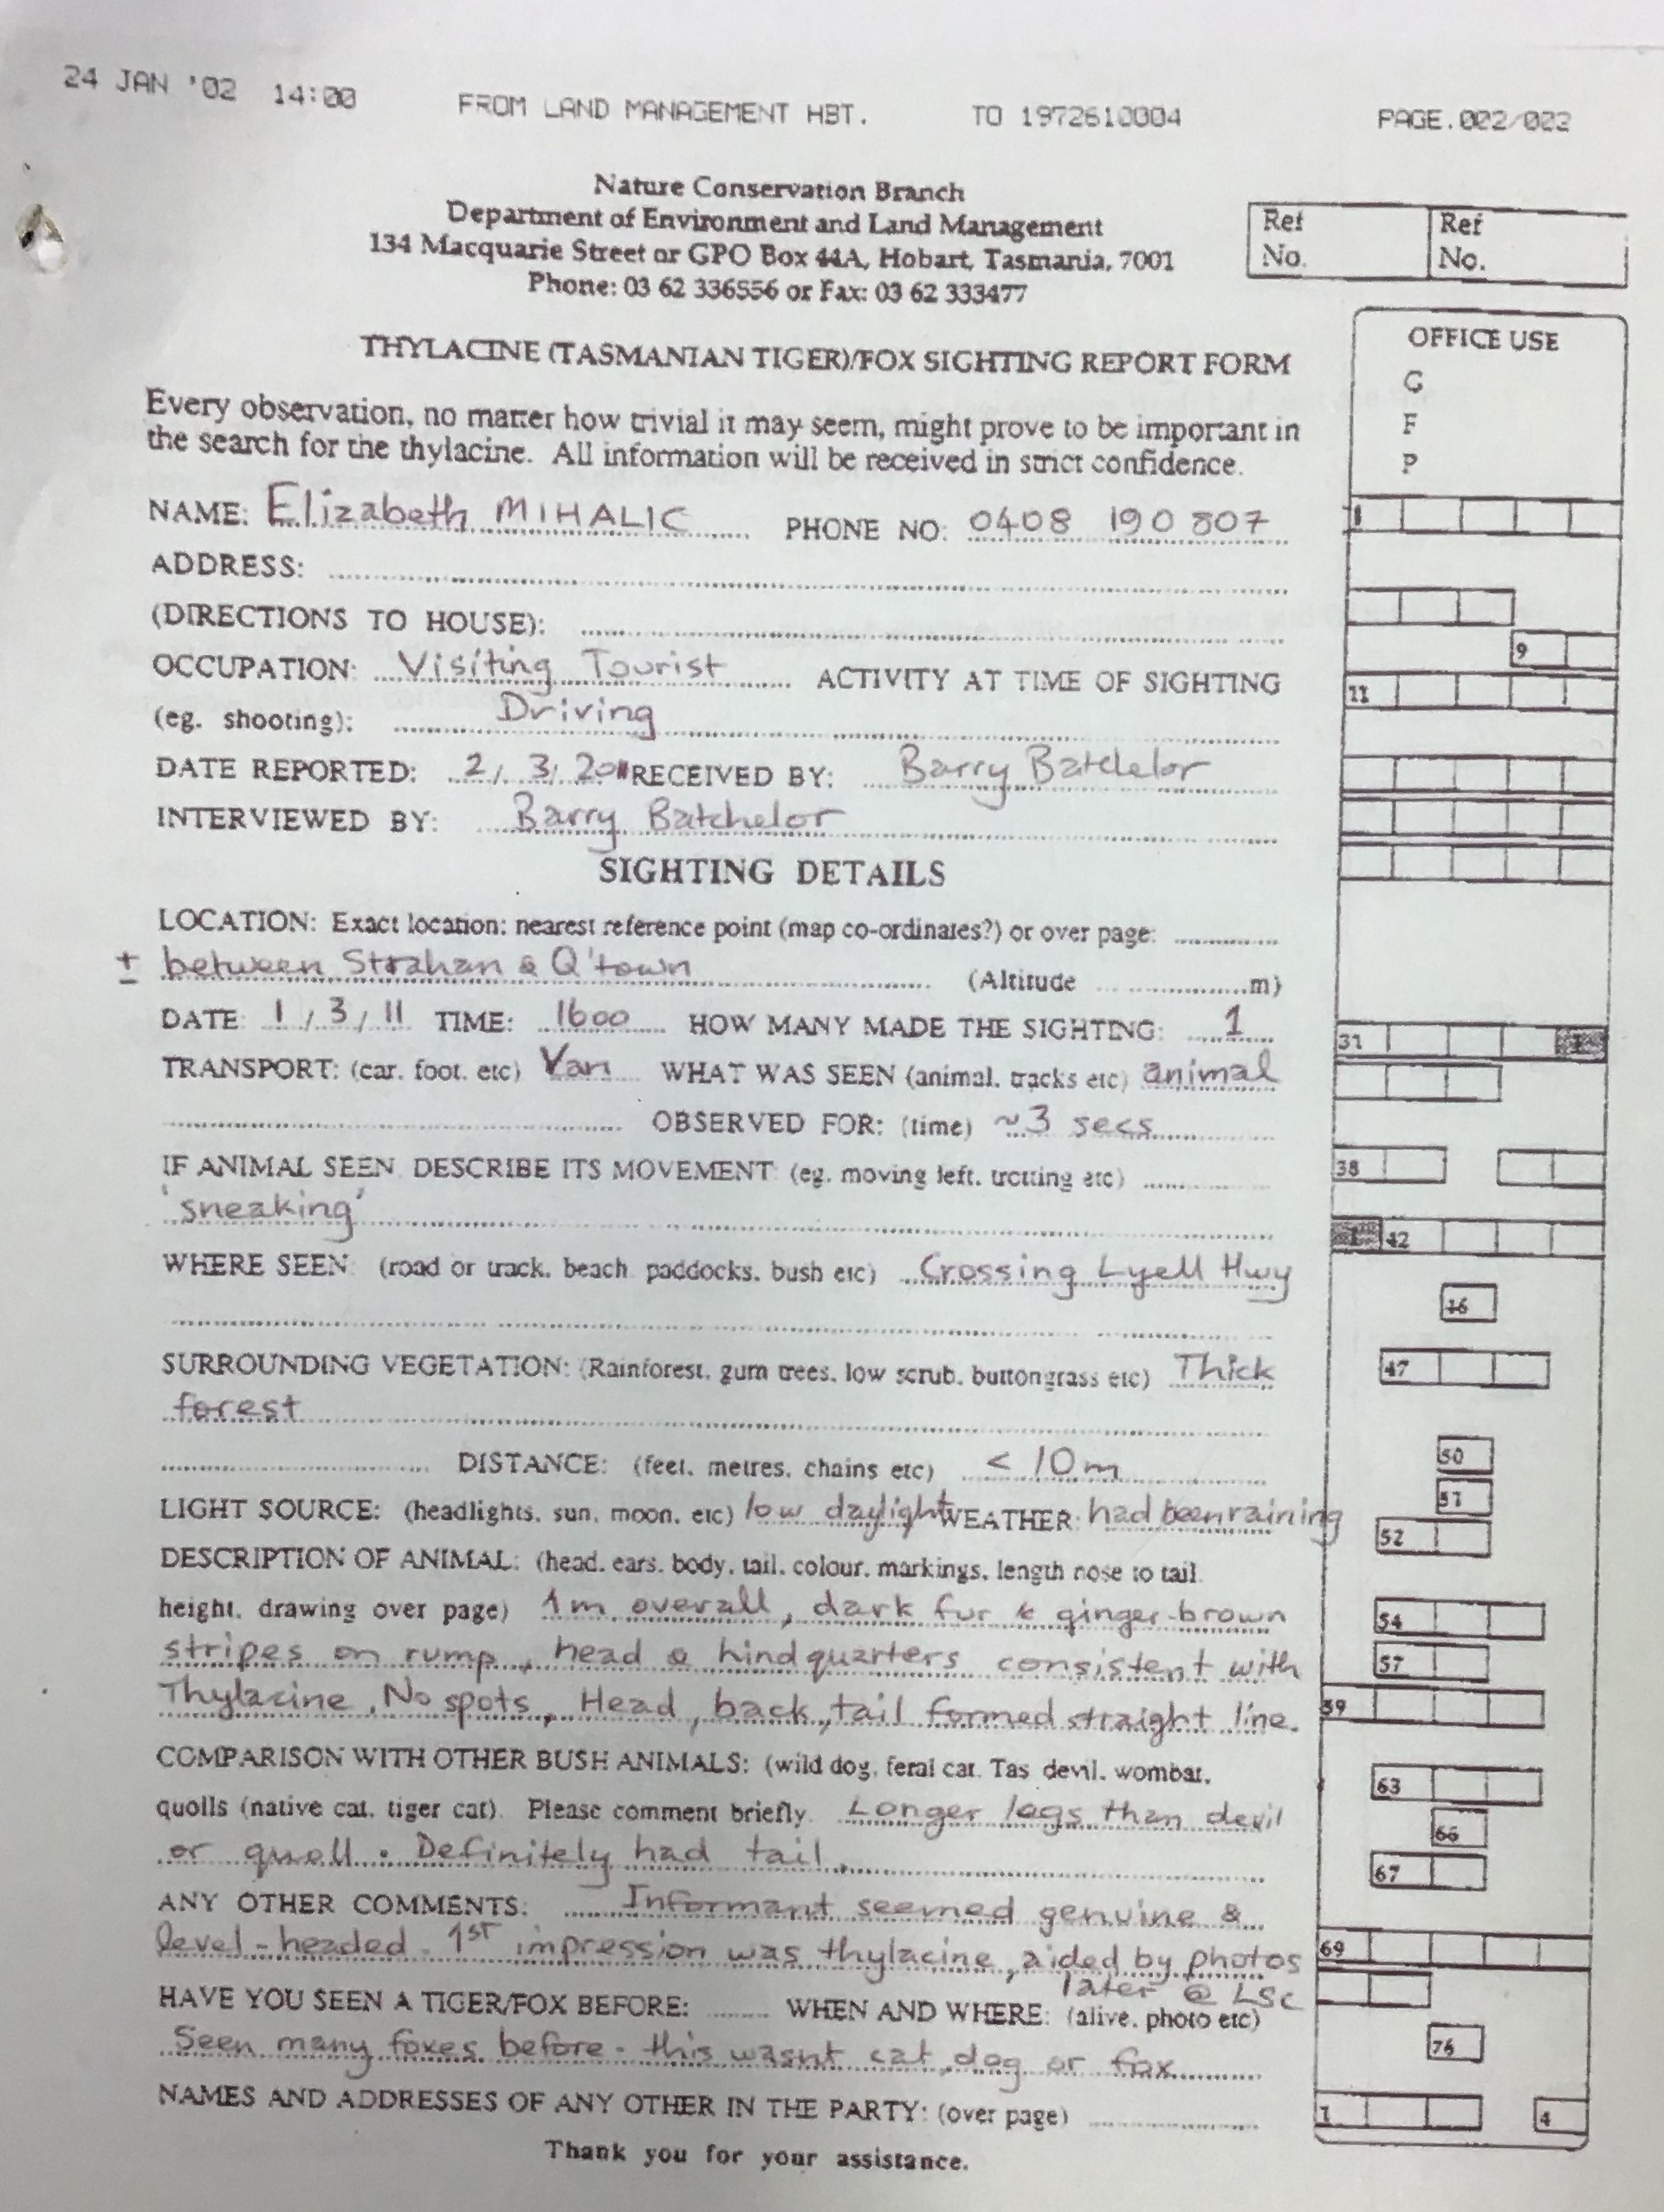 24 JAN '02 14:00 FROM LAND MANAGEMENT HBT. TO 1972610004 PAGE.002/002
Nature Conservation Branch
Department of Environment and Land Management
134 Macquarie Street or GPO Box 44A, Hobart, Tasmania, 7001
Phone: 03 62 336556 or Fax: 03 62 333477
Ref No. Ref No.
OFFICE USE
G
F
P
THYLACINE (TASMANIAN TIGER)/FOX SIGHTING REPORT FORM
Every observation, no matter how trivial it may seem, might prove to be important in
the search for the thylacine. All information will be received in strict confidence.
NAME: Elizabeth MIHALIC PHONE NO: 0408 190 807
1
ADDRESS:
(DIRECTIONS TO HOUSE):
9
OCCUPATION: Visiting Tourist ACTIVITY AT TIME OF SIGHTING
11
(eg. shooting): Driving
DATE REPORTED: 2/ 3/ RECEIVED BY: Barry Batchelor
INTERVIEWED BY: Barry Batchelor
SIGHTING DETAILS
LOCATION: Exact location: nearest reference point (map co-ordinates?) or over page:
± between Strahan & Q'town (Altitude m)
DATE 1 / 3 / 11 TIME: 1600 HOW MANY MADE THE SIGHTING: 1
31
TRANSPORT: (car. foot. etc) Van WHAT WAS SEEN (animal. tracks etc) animal
OBSERVED FOR: (time) ~3 secs
IF ANIMAL SEEN DESCRIBE ITS MOVEMENT (eg. moving left. trotting etc)
38
'sneaking'
42
WHERE SEEN (road or track. beach paddocks. bush etc) Crossing Lyell Hwy
46
SURROUNDING VEGETATION: (Rainforest. gum trees. low scrub. buttongrass etc) Thick
47
forest
DISTANCE: (feet. metres. chains etc) < 10m
50
LIGHT SOURCE: (headlights. sun. moon. etc) low daylight WEATHER: had been raining
51
52
DESCRIPTION OF ANIMAL: (head. ears. body. tail. colour. markings. length nose to tail.
height. drawing over page) 1m overall, dark fur & ginger-brown
54
stripes on rump, head & hindquarters consistent with
57
Thylacine, No spots, Head, back, tail formed straight line.
59
COMPARISON WITH OTHER BUSH ANIMALS: (wild dog. feral cat. Tas devil. wombat.
63
quolls (native cat. tiger cat). Please comment briefly. Longer legs than devil
66
or quoll. Definitely had tail.
67
ANY OTHER COMMENTS: Informant seemed genuine &
level-headed. 1st impression was thylacine, aided by photos
69
later @ LSC
HAVE YOU SEEN A TIGER/FOX BEFORE: WHEN AND WHERE: (alive. photo etc)
Seen many foxes before - this wasnt cat, dog or fox
NAMES AND ADDRESSES OF ANY OTHER IN THE PARTY: (over page)
1 4
Thank you for your assistance.